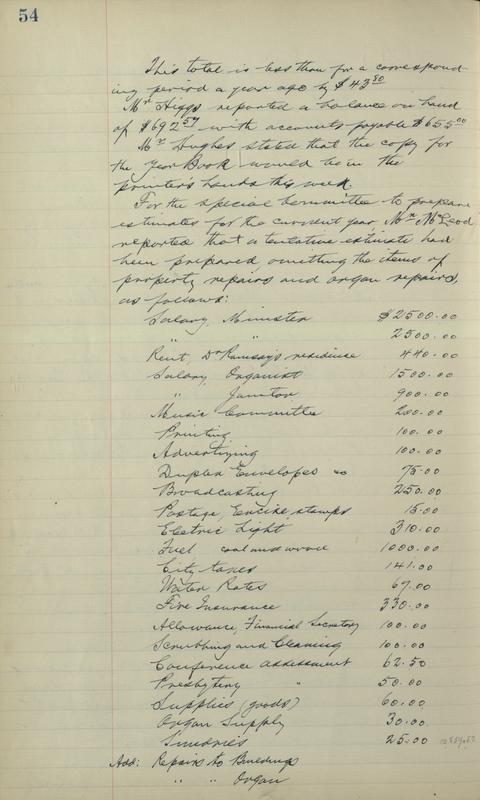 54
This total is less than for a correspond-
ing period a year ago by $43.80
Mr Higgs reported a balance on hand
of $692.57 with accounts payable $655.00
Mr Hughes stated that the copy for
the Year Book would be in the
printer's hands this week.
For the special Committee to prepare
estimates for the current year Mr McLeod
reported that a tentative estimate had
been prepared omitting the items of
property repairs and organ repairs,
as follows:
Salary, Minister $2500.00
" " 2500.00
Rent, Dr Ramsay's residence 440.00
Salary, Organist 1500.00
" Janitor 900.00
Music Committee 200.00
Printing 100.00
Advertizing 100.00
Duplex Envelopes 75.00
Broadcasting 250.00
Postage, Excise stamps 15.00
Electric Light 310.00
Fuel coal and wood 1000.00
City taxes 141.00
Water Rates 67.00
Fire Insurance 330.00
Allowance, Financial Secretary 100.00
Scrubbing and Cleaning 100.00
Conference assessment 62.50
Presbytery " 50.00
Supplies (goods) 60.00
Organ Supply 30.00
Sundries 25.00
Add: Repairs to Buildings
" " Organ